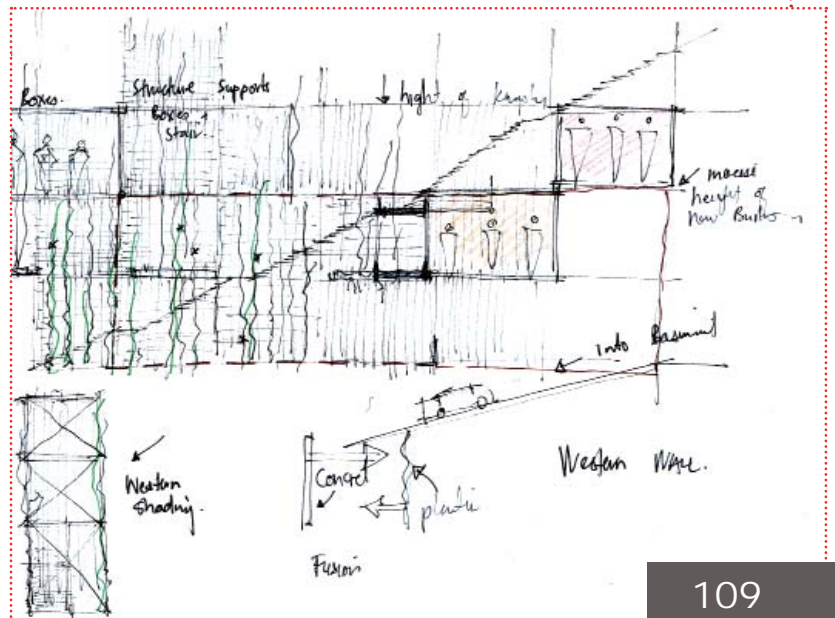 Boxes.
Structure Supports
Boxes +
Stair.
hight of
height of
New
into Basement
Western
Shading.
Concret
plastic
Western WALL.
Fusion
109